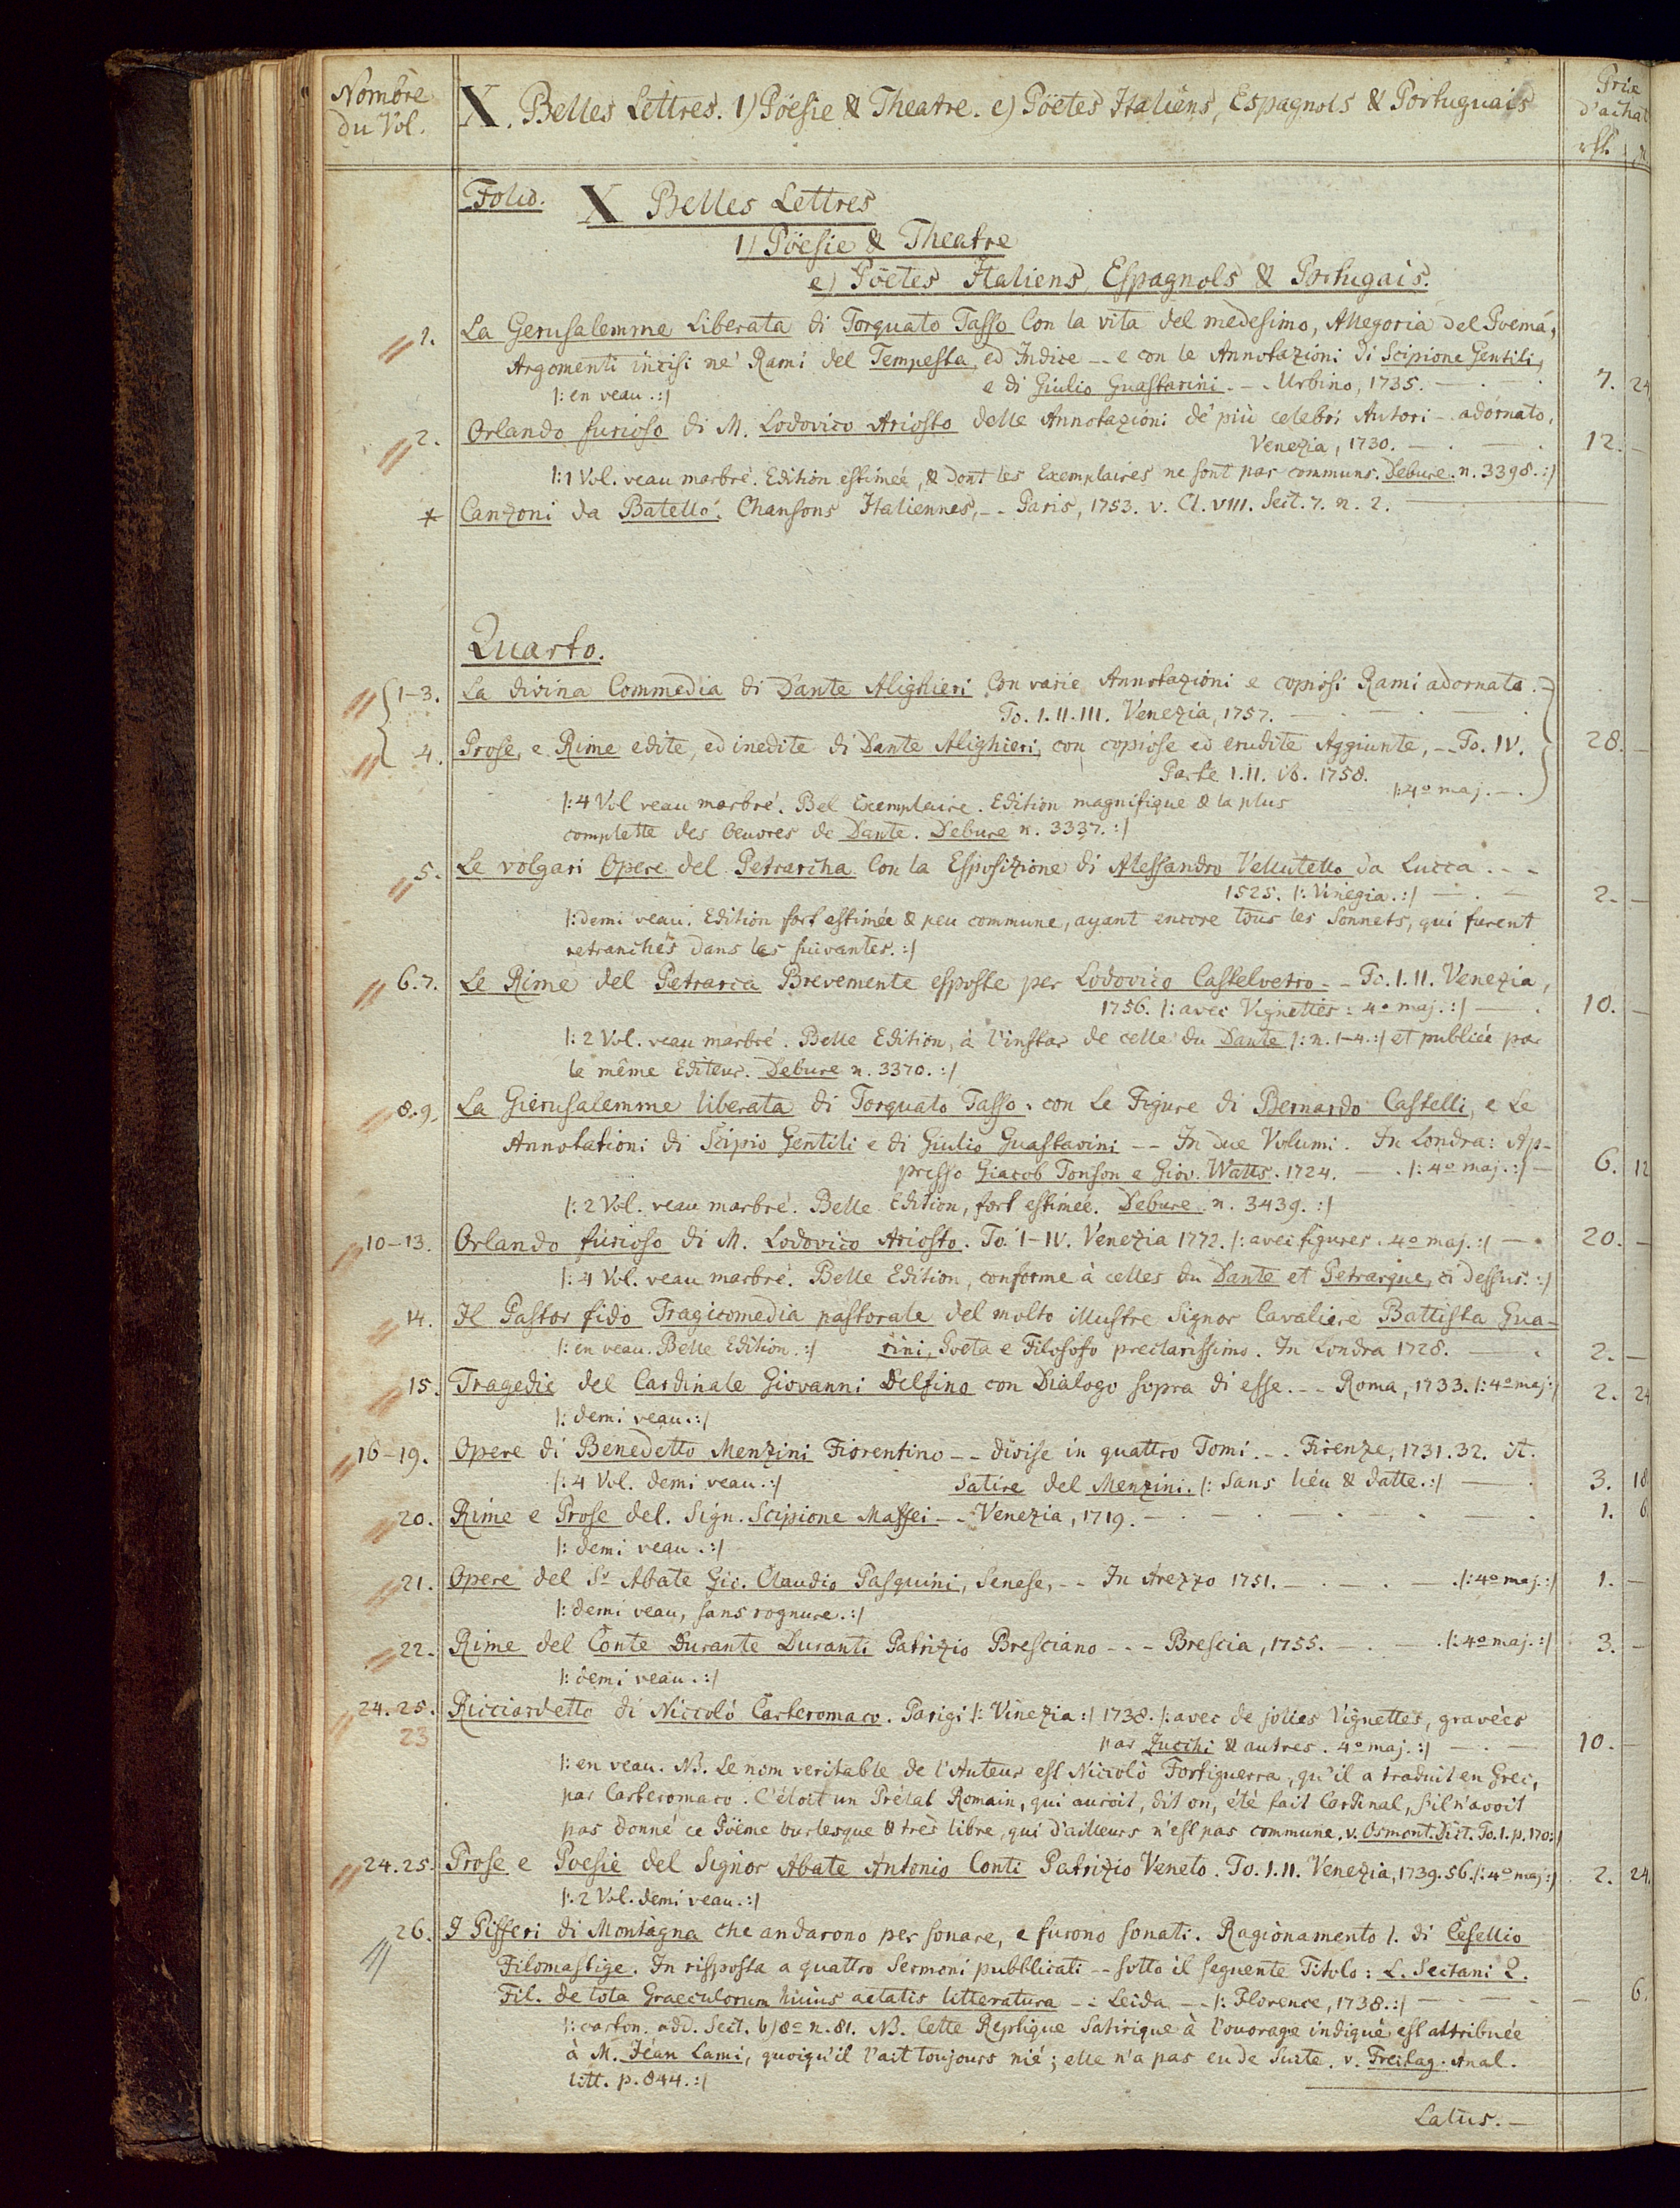 Nombre
du Vol.
X. Belles Lettres. 1) Pöesie & Theatre. e) Pöetes Italiens, Espagnols & Portuguais
Prix
d'achat
rthl.
Folio. X Belles Lettres
1) Pöesie & Theatre
e) Pöetes Italiens, Espagnols & Portugais.
1. La Gerusalemme Liberata di Torquato Tasso Con la vita del medesimo, Allegoria del Poema,
Argomenti incisi ne' Rami del Tempesta, ed Indice -- e con le Annotazioni di Scipione Gentili,
e di Giulio Guastarini. - - Urbino, 1735. — . — . 7. 24
|: en veau. :|
2. Orlando furioso di M. Lodovico Ariosto delle Annotazioni de' più celebri Autori - adornato.
Venezia, 1730. — . — . 12. —
|: 1 Vol. veau marbré. Edition estimée, & dont les Exemplaires ne sont pas communs. Debure. n. 3398. :|
* Canzoni da Batello. Chansons Italiennes, -- Paris, 1753. v. Cl. VIII. Sect. 7. n. 2. —
Quarto.
1-3. La divina Commedia di Dante Alighieri Con varie Annotazioni e copiosi Rami adornata. -
To. I. II. III. Venezia, 1757. — . — . — . —
4. Prose, e Rime edite, ed inedite di Dante Alighieri, con copiose ed erudite Aggiunte, -- To. IV. 28. —
Parte I. II. ib. 1758.
|: 4º maj. — .
|: 4 Vol veau marbré. Bel Exemplaire. Edition magnifique & la plus
complette des Oeuvres de Dante. Debure n. 3337. :|
5. Le volgari Opere del Petrarcha Con la Esposizione di Alessandro Vellutello da Lucca. - -
1525. |: Vinegia. :| — . — 2. —
|: demi veau. Edition fort estimée & peu commune, ayant encore tous les Sonnets, qui furent
retranchés dans les suivantes. :|
6.7. Le Rime del Petrarca Brevemente esposte per Lodovico Castelvetro - - To. I. II. Venezia,
1756. |: avec Vignettes : 4º maj. :| — . 10. —
|: 2 Vol. veau marbré. Belle Edition, à l'instar de celle du Dante |: n. 1-4. :| et publiée par
le même Editeur. Debure n. 3370. :|
8.9. La Gierusalemme liberata di Torquato Tasso. con Le Figure di Bernardo Castelli, e Le
Annotationi di Scipio Gentili e di Giulio Guastavini -- In due Volumi. In Londra: Ap-
presso Giacob Tonson e Giov. Watts. 1724. — . |: 4º maj. :| — 6. 12
|: 2 Vol. veau marbré. Belle Edition, fort estimée. Debure. n. 3439. :|
10-13. Orlando furioso di M. Lodovico Ariosto. To. I-IV. Venezia 1772. |: avec figures. 4º maj. :| — . 20. —
|: 4 Vol. veau marbré. Belle Edition, conforme à celles du Dante et Petrarque, ci dessus. :|
14. Il Pastor fido Tragicomedia pastorale del molto illustre Signor Cavaliere Battista Gua-
|: en veau. Belle Edition. :| rini, Poeta e Filosofo preclarissimo. In Londra 1728. — . 2. —
15. Tragedie del Cardinale Giovanni Delfino con Dialogo sopra di esse. - - Roma, 1733. |: 4º maj :| 2. 24
|: demi veau. :|
16-19. Opere di Benedetto Menzini Fiorentino -- divise in quattro Tomi. - - Firenze, 1731. 32. it.
|: 4 Vol. demi veau. :| Satire del Menzini. |: Sans lieu & datte. :| — . 3. 18
20. Rime e Prose del. Sign. Scipione Maffei - - Venezia, 1719. — . — . — . — . — . 1. 6
|: demi veau. :|
21. Opere del Sr Abate Gio. Claudio Pasquini, Senese, - - In Arezzo 1751. — . — . — . |: 4º maj. :| 1. —
|: demi veau, sans rognure. :|
22. Rime del Conte Durante Duranti Patrizio Bresciano - - - Brescia, 1755. — . — . |: 4º maj. :| 3. —
|: demi veau. :|
24.25. Ricciardetto di Niccolò Carteromaco. Parigi |: Vinezia :| 1738. |: avec de jolies Vignettes, gravées
23 par Zucchi & autres. 4º maj. :| — . — 10. —
|: en veau. NB. Le nom veritable de l'Auteur est Niccolò Fortiguerra, qu'il a traduit en Grec,
par Carteromaco. C'étoit un Prélat Romain, qui auroit, dit on, été fait Cardinal, s'il n'avoit
pas donné ce Pöeme burlesque & très libre, qui d'ailleurs n'est pas commune. v. Osmont. Dict. To. 1. p. 170 :|
24.25. Prose e Poesie del Signor Abate Antonio Conti Patrizio Veneto. To. I. II. Venezia, 1739. 56. |: 4º maj :| 2. 24.
|: 2 Vol. demi veau. :|
26. I Pifferi di Montagna che andarono per sonare, e furono sonati. Ragionamento I. di Cesellio
Filomastige. In risposta a quattro Sermoni pubblicati -- sotto il seguente Titolo: L. Sectani Q.
Fil. de tota Graeculorum huius aetatis litteratura -: Leida -- |: Florence, 1738. :| — — — 6.
|: carton. add. Sect. b) 8º n. 81. NB. Cette Replique Satirique à l'ouvrage indiqué est attribuée
à M. Jean Lami, quoiqu'il l'ait toujours nié; elle n'a pas eu de Suite. v. Freitag. Anal.
litt. p. 844. :|
Latus. —